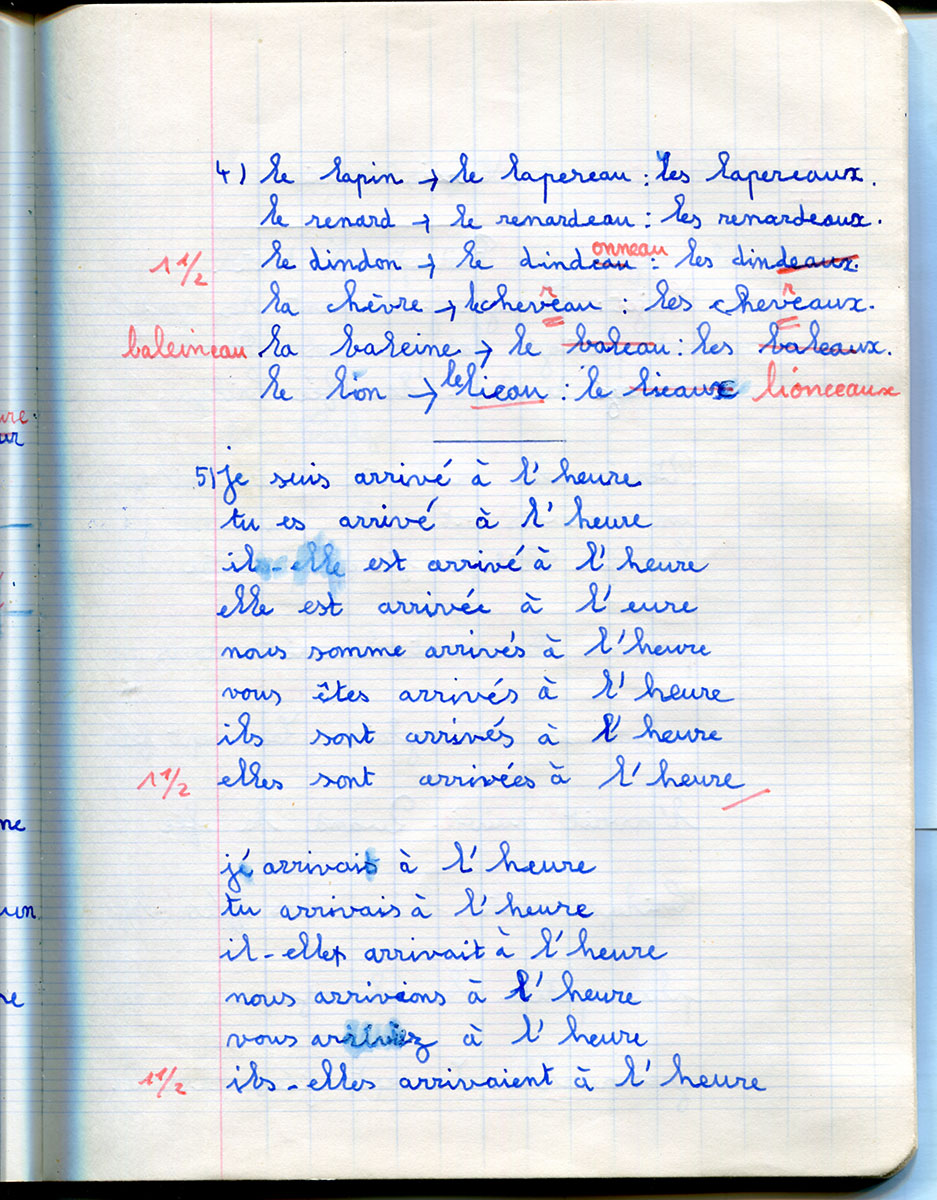 4) le lapin → le lapereau : les lapereaux.
le renard → le renardeau : les renardeaux.
1 1/2 le dindon → le dindeau onneau : les dindeaux.
la chèvre → le chevreau : les chevreaux.
baleineau la baleine → le baleau : les baleaux.
le lion → le lieau : le lieaux lionceaux
5) je suis arrivé à l'heure
tu es arrivé à l'heure
il - elle est arrivé à l'heure
elle est arrivée à l'eure
nous somme arrivés à l'heure
vous êtes arrivés à l'heure
ils sont arrivés à l'heure
1 1/2 elles sont arrivées à l'heure
j'arrivais à l'heure
tu arrivais à l'heure
il - elle arrivait à l'heure
nous arrivions à l'heure
vous arriviez à l'heure
1 1/2 ils - elles arrivaient à l'heure
ure
ur
ne
un
re